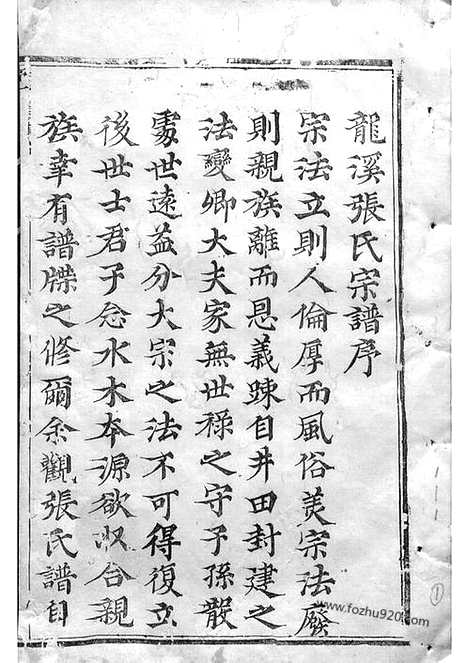 龍溪張氏宗譜序
宗法立則人倫厚而風俗美宗法廢
則親族離而恩義踈自井田封建之
法變卿大夫家無世祿之守子孫散
處世遠益分大宗之法不可得復立
後世士君子念水木本源欲収合親
族幸有譜牒之修爾余觀張氏譜自
www.fozhu920.com
1